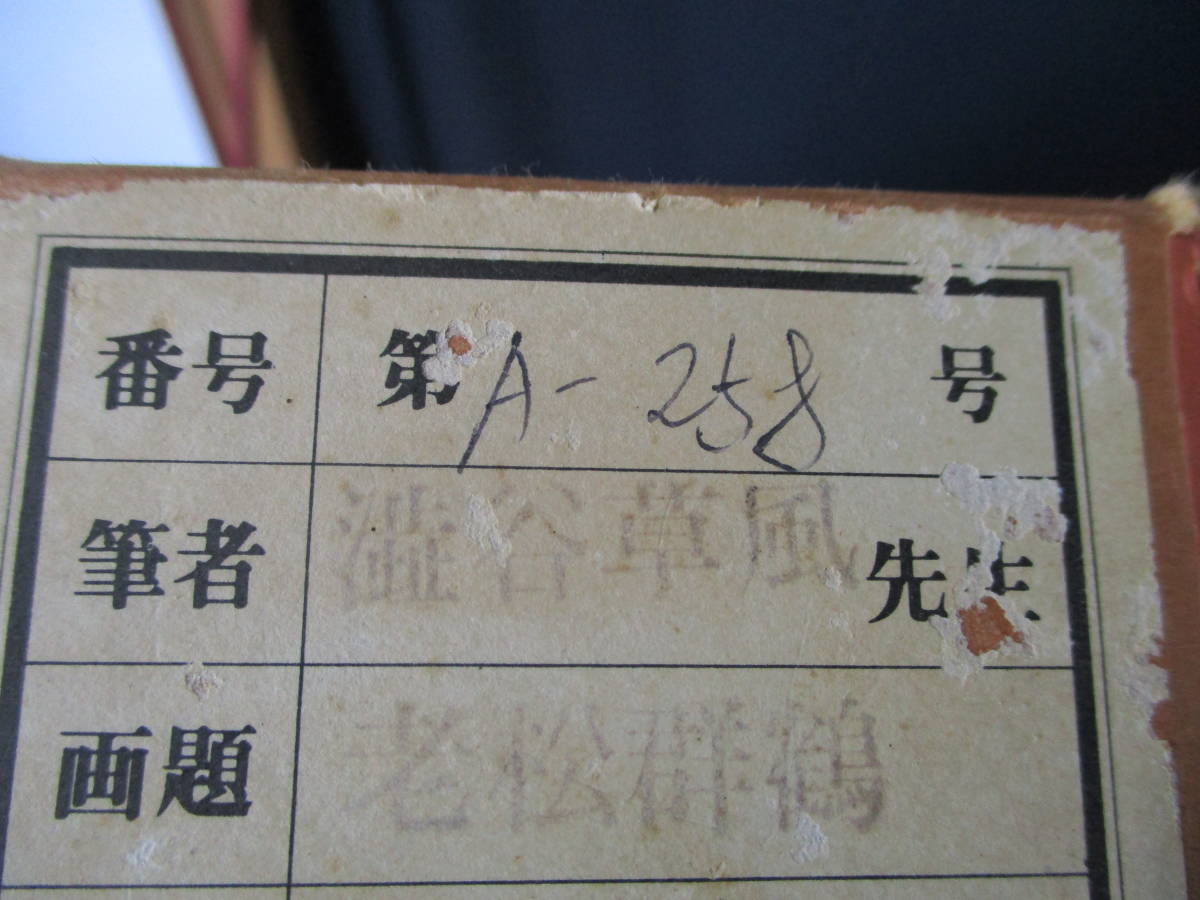 番号 第A-258号
筆者 澁谷草風 先生
画題 老松群鶴